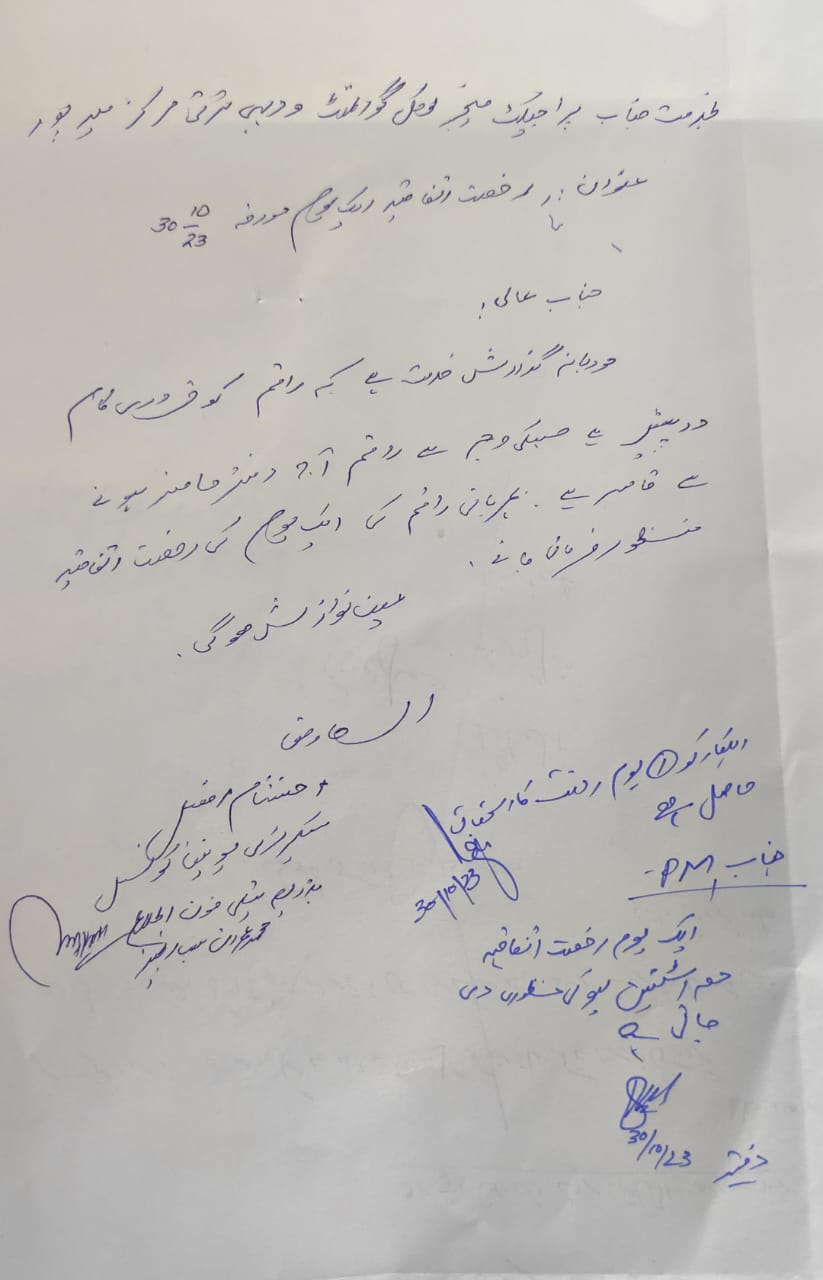 بخدمت جناب پراجیکٹ مینجر لوکل گورنمنٹ و دیہی ترقی مرکز میرپور
عنوان :۔ رخصت اتفاقیہ ایک یوم مورخہ 30 10/23
جناب عالی!
مودبانہ گذارش خدمت ہے کہ راقم کو ضروری کام
درپیش ہے جسکی وجہ سے راقم آج دفتر حاضر ہونے
سے قاصر ہے۔ مہربانی راقم کی ایک یوم کی رخصت اتفاقیہ
منظور فرمائی جائے۔
عین نوازش ہوگی۔
العارض
احتشام
سیکریٹری یونین کونسل
بذریعہ ٹیلی فون اطلاع
محمد عمران
اہلکار کو 1 یوم رخصت کا استحقاق
حاصل ہے
30/10/23
جناب P.M
ایک یوم رخصت اتفاقیہ
معہ اسٹیشن لیو کی منظوری دی
جاتی ہے
30/10/23
دفتر